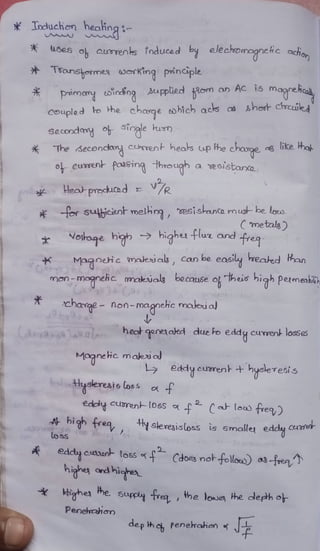 * Induction heating :-
* uses of currents induced by electromagnetic action
* Transformer working principle
* primary winding supplied from an AC is magnetically
coupled to the charge which acts as short circuited
secondary of single turn
* The secondary current heats up the charge as like that
of current passing through a resistance.
* Heat produced = V²/R
* for sufficient melting, resistance must be low
(metals)
* Voltage high → higher flux and freq
* Magnetic materials, can be easily heated than
non-magnetic materials because of their high permeability
* charge - non-magnetic material
↓
heat generated due to eddy current losses
Magnetic material
↳ eddy current + hysteresis
Hysteresis loss α f
eddy current loss α f² (at low freq)
* high freq, Hysteresis loss is smaller eddy current
loss
* eddy current loss α f² (does not follow) as freq ↑
higher and higher
* Higher the supply freq, the lower the depth of
Penetration
depth of penetration α √1/f